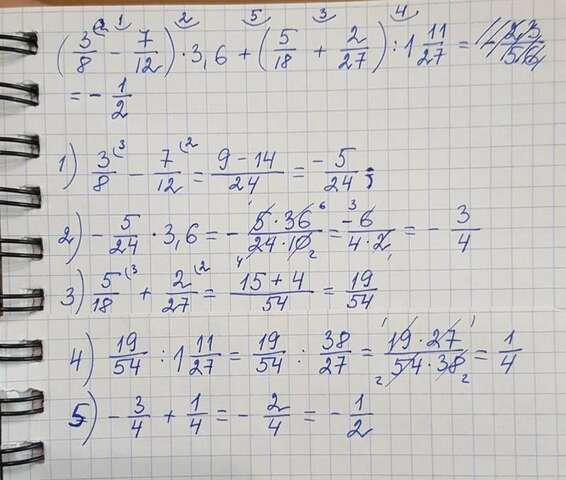 1 2 5 3 4
(3/8 - 7/12) · 3,6 + (5/18 + 2/27) : 1 11/27 =
= - 1/2
1) 3/8 (3 - 7/12 (2 = (9 - 14)/24 = -5/24 ;
2) - 5/24 · 3,6 = - (5 · 36)/(24 · 10) = (-6)/(4 · 2) = - 3/4
3) 5/18 (3 + 2/27 (2 = (15 + 4)/54 = 19/54
4) 19/54 : 1 11/27 = 19/54 : 38/27 = (19 · 27)/(54 · 38) = 1/4
5) - 3/4 + 1/4 = - 2/4 = - 1/2